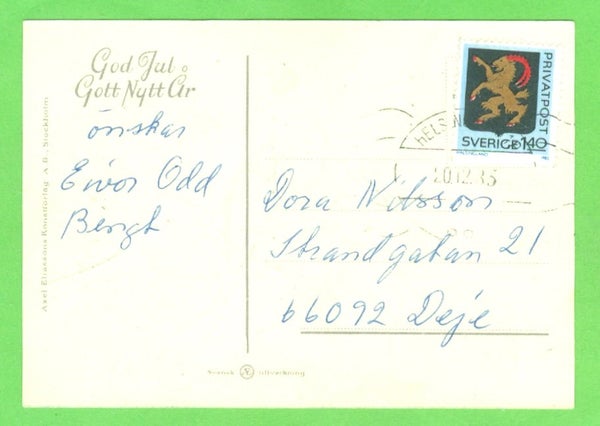 God Jul o
Gott Nytt År
önskar
Eivor Odd
Bengt
Axel Eliassons Konstförlag A.B. Stockholm
PRIVATPOST
SVERIGE 140
HELSIN
10.12.85
Dora Nilsson
Strandgatan 21
66092 Deje
Svensk Æ tillverkning